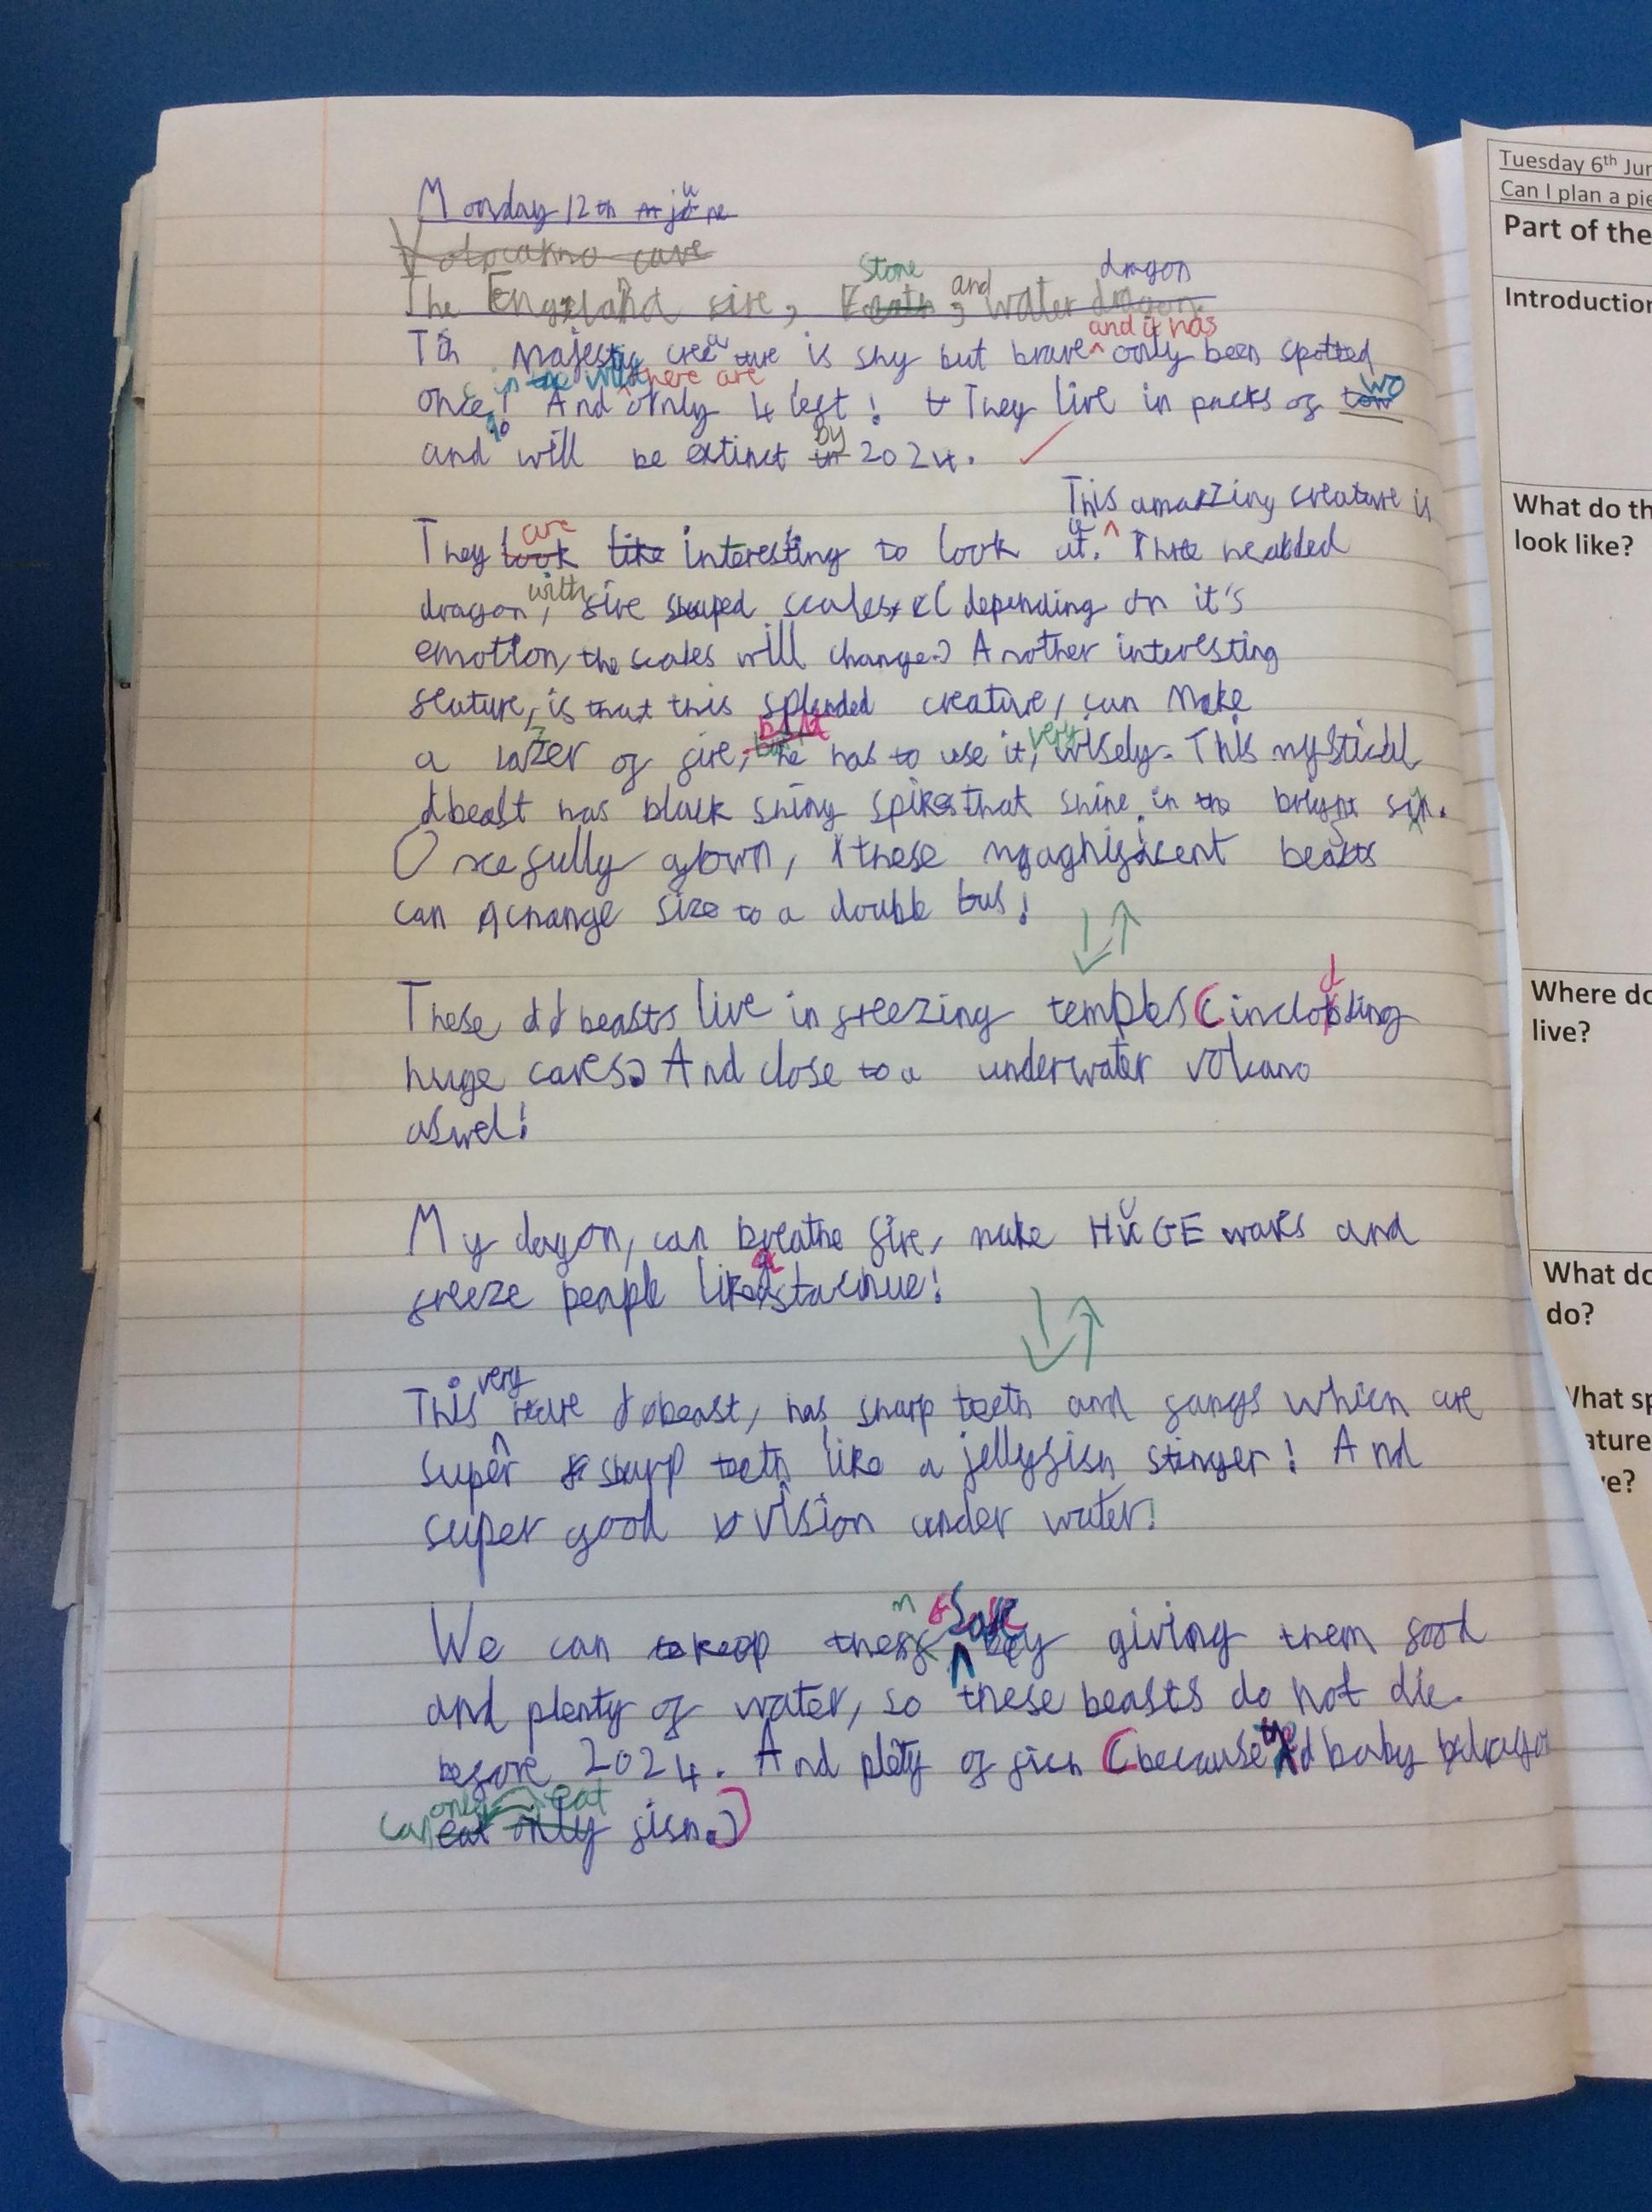 Monday 12th june
Volocakno cave
The England fire, Stone and water dragon
majestic creature is shy but brave and it has only been spotted
once! And there are only 4 left! They live in packs of two
and will be extinct by 2024.
This amazing creature is
They are interesting to look at. Three headed
dragon, with fire shaped scales (depending on it's
emotion, the scales will change.) Another interesting
feature, is that this splended creature, can make
a lazer of fire, but he has to use it, very wisely. This mystical
beast has black shiny spikes that shine in the bright sun.
Once fully grown, these magnificent beasts
can change size to a double bus!
These beasts live in freezing temples (including
huge caves) And close to a underwater volcano
aswel!
My dagon, can breathe fire, make HUGE waves and
freeze people like a stachue!
This very rare beast, has sharp teeth and fangs which are
super sharp teeth like a jellyfish stinger! And
super good vision under water!
We can keep them safe by giving them food
and plenty of water, so these beasts do not die
before 2024. And plety of fish (because the baby
can only eat fish.)
Tuesday 6th Jun
Can I plan a pie
Part of the
Introduction
What do th
look like?
Where do
live?
What do
do?
What sp
ature
e?